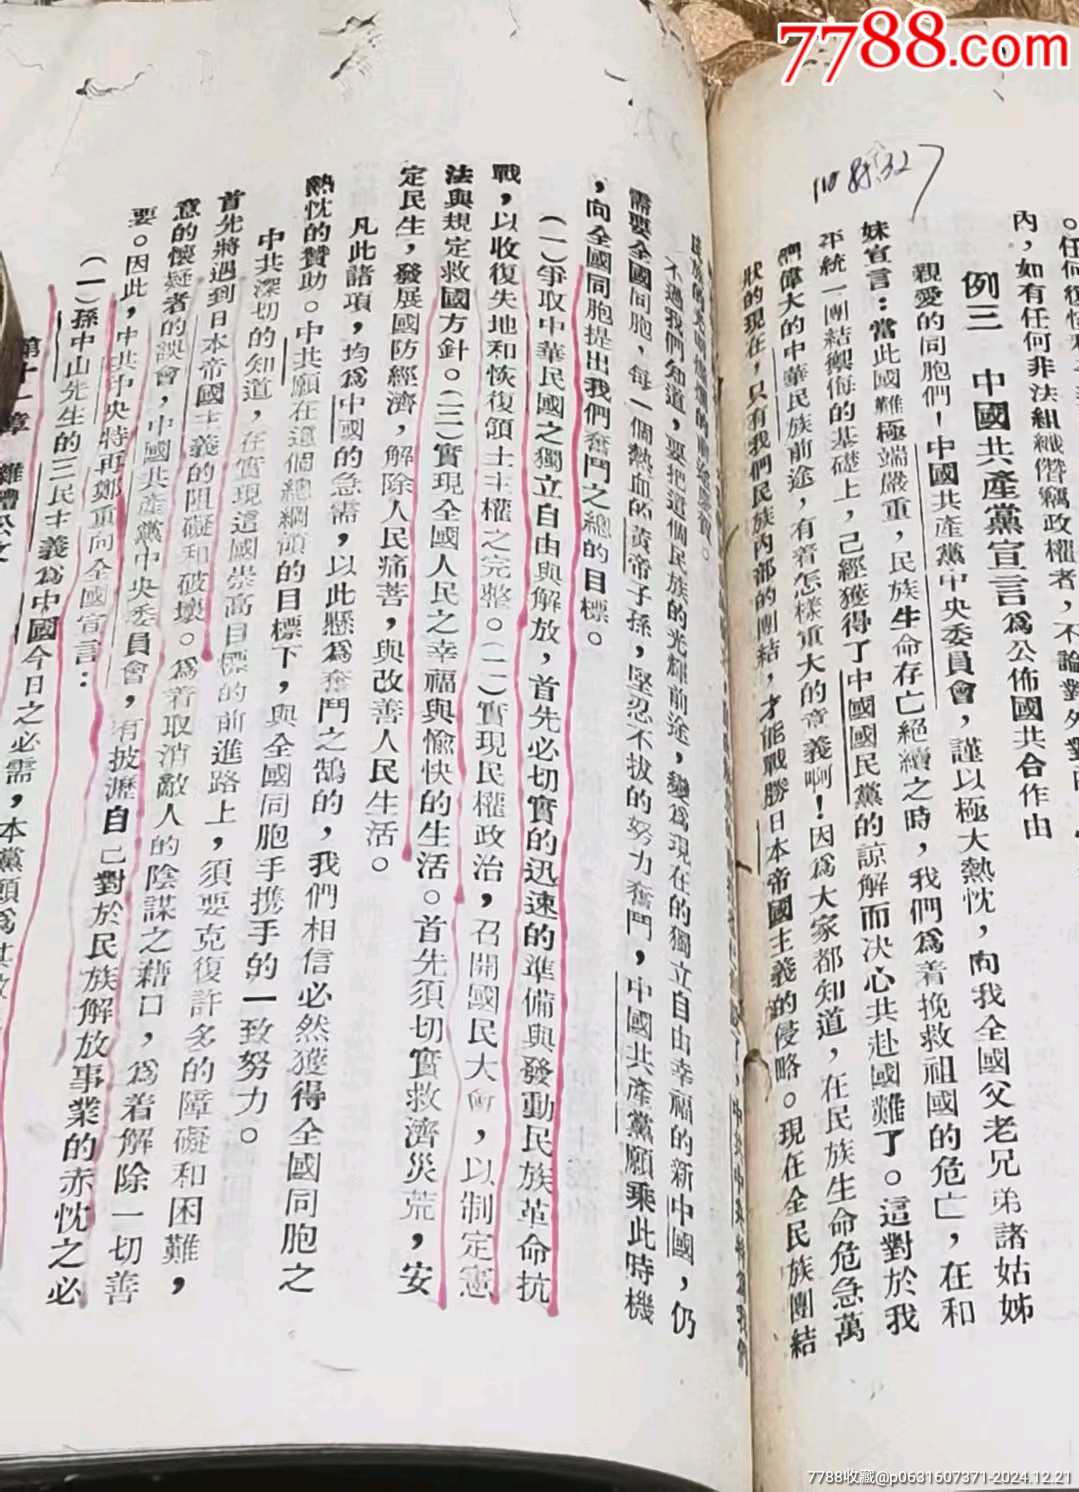 內，如有任何非法組織僭竊政權者，不論對外對
例三　中國共產黨宣言為公佈國共合作由
親愛的同胞們！中國共產黨中央委員會，謹以極大熱忱，向我全國父老兄弟諸姑姊
妹宣言：當此國難極端嚴重，民族生命存亡絕續之時，我們為着挽救祖國的危亡，在和
平統一團結禦侮的基礎上，已經獲得了中國國民黨的諒解而決心共赴國難了。這對於我
們偉大的中華民族前途，有着怎樣重大的意義啊！因為大家都知道，在民族生命危急萬
狀的現在，只有我們民族內部的團結，才能戰勝日本帝國主義的侵略。現在全民族團結
了，中共中央特為我們
民族的光明燦爛的前途慶賀。
不過我們知道，要把這個民族的光輝前途，變為現在的獨立自由幸福的新中國，仍
需要全國同胞，每一個熱血的黃帝子孫，堅忍不拔的努力奮鬥，中國共產黨願乘此時機
，向全國同胞提出我們奮鬥之總的目標。
（一）爭取中華民國之獨立自由與解放，首先必切實的迅速的準備與發動民族革命抗
戰，以收復失地和恢復領土主權之完整。（二）實現民權政治，召開國民大會，以制定憲
法與規定救國方針。（三）實現全國人民之幸福與愉快的生活。首先須切實救濟災荒，安
定民生，發展國防經濟，解除人民痛苦，與改善人民生活。
凡此諸項，均為中國的急需，以此懸為奮鬥之鵠的，我們相信必然獲得全國同胞之
熱忱的贊助。中共願在這個總綱領的目標下，與全國同胞手携手的一致努力。
中共深切的知道，在實現這國崇高目標的前進路上，須要克復許多的障礙和困難，
首先將遇到日本帝國主義的阻礙和破壞。為着取消敵人的陰謀之藉口，為着解除一切善
意的懷疑者的誤會，中國共產黨中央委員會，有披瀝自己對於民族解放事業的赤忱之必
要。因此，中共中央特再鄭重向全國宣言：
（一）孫中山先生的三民主義為中國今日之必需，本黨願為其
7788.com
7788收藏@p0631607371-2024.12.21